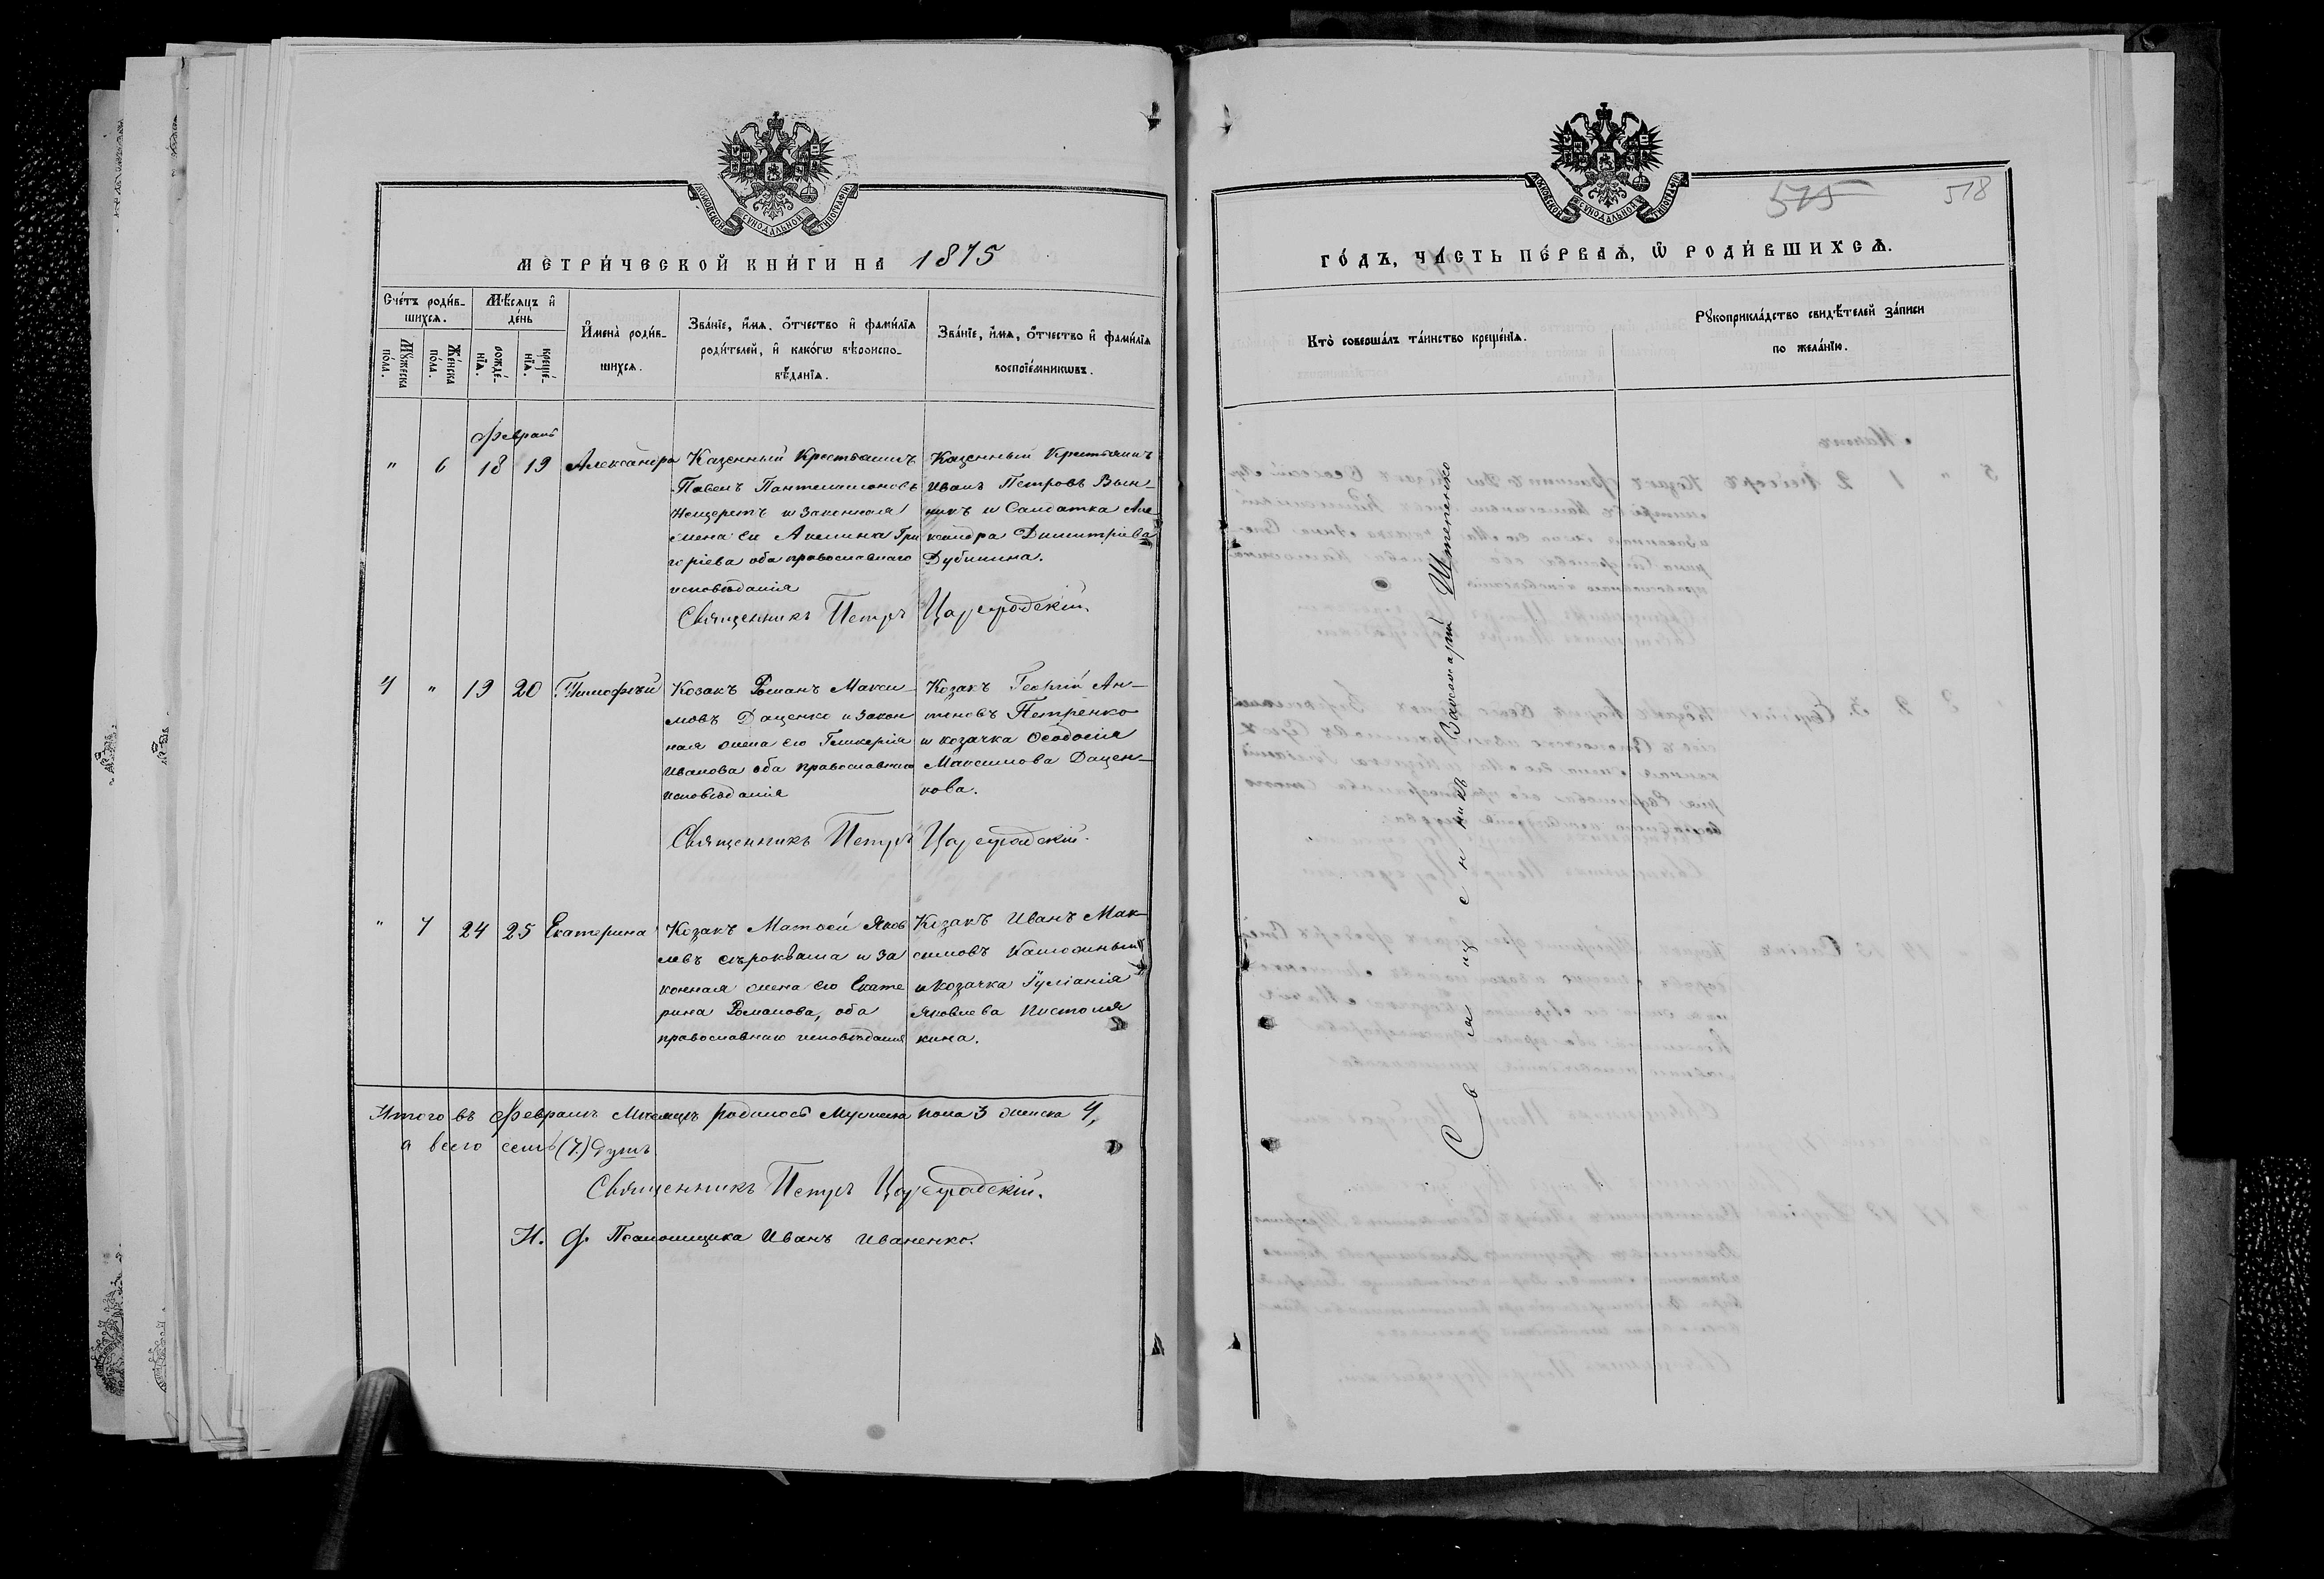 МОСКОВСКОЙ СУНОДАЛЬНОЙ ТИПОГРАФІИ
МЕТРИ́ЧЕСКОЙ КНИ́ГИ НА 1875
Сче́тъ роди́в-
шихсѧ.
Мѣ́сѧцъ и҆
де́нь
И҆мена̀ роди́в-
шихсѧ.
Зва́нїе, и҆́мѧ, ѻ҆́тчество и҆ фами́лїѧ
роди́телей, и҆ како́гѡ вѣроиспо-
вѣ́данїѧ.
Зва́нїе, и҆́мѧ, ѻ҆́тчество и҆ фами́лїѧ
воспрїе́мникѡвъ.
Мꙋ́жеска
по́ла.
Же́нска
по́ла.
рожде́-
нїѧ.
креще́-
нїѧ.
Февраль
" 6 18 19 Александра
Казенный Крестьянинъ
Павелъ Пантелимоновъ
и законная
жена его Акелина Гри
горіева оба православнаго
исповѣданія
Казенный Крестьянинъ
Иванъ Петровъ Вын-
никъ и Солдатка Але
ксандра Димитріева
Дубинина.
Священникъ Петръ Цареградскій.
4 " 19 20 Тимофѣй
Козакъ Романъ Макси-
мовъ Даценко и закон
ная жена его Гликерія
Иванова оба православнаго
исповѣданія
Козакъ Георгій Ан-
тоновъ Петренко
и козачка Ѳеодосія
Максимова Дацен-
кова.
Священникъ Петръ Цареградскій.
" 7 24 25 Екатерина
Козакъ Матвѣй Яков
левъ Сѣрокваша и за
конная жена его Екате
рина Романова, оба
православнаго исповѣданія
Козакъ Иванъ Мак-
симовъ
и козачка Іуліанія
Яковлева Пистоля
кина.
Итого въ Февралѣ Мѣсяцѣ родилось Мужеска пола 3 женска 4,
а всего семь (7) душъ
Священникъ Петръ Цареградскій.
И. д. Псаломщика Иванъ Иваненко.
МОСКОВСКОЙ СУНОДАЛЬНОЙ ТИПОГРАФІИ
515 518
ГО́ДЪ, ЧА́СТЬ ПЕ́РВАѦ, Ѡ҆ РОДИ́ВШИХСѦ.
Кто̀ соверша́лъ та́инство креще́нїѧ.
Рꙋкоприкла́дство свидѣ́телей за́писи
по жела́нїю.
Священникъ Штепенко